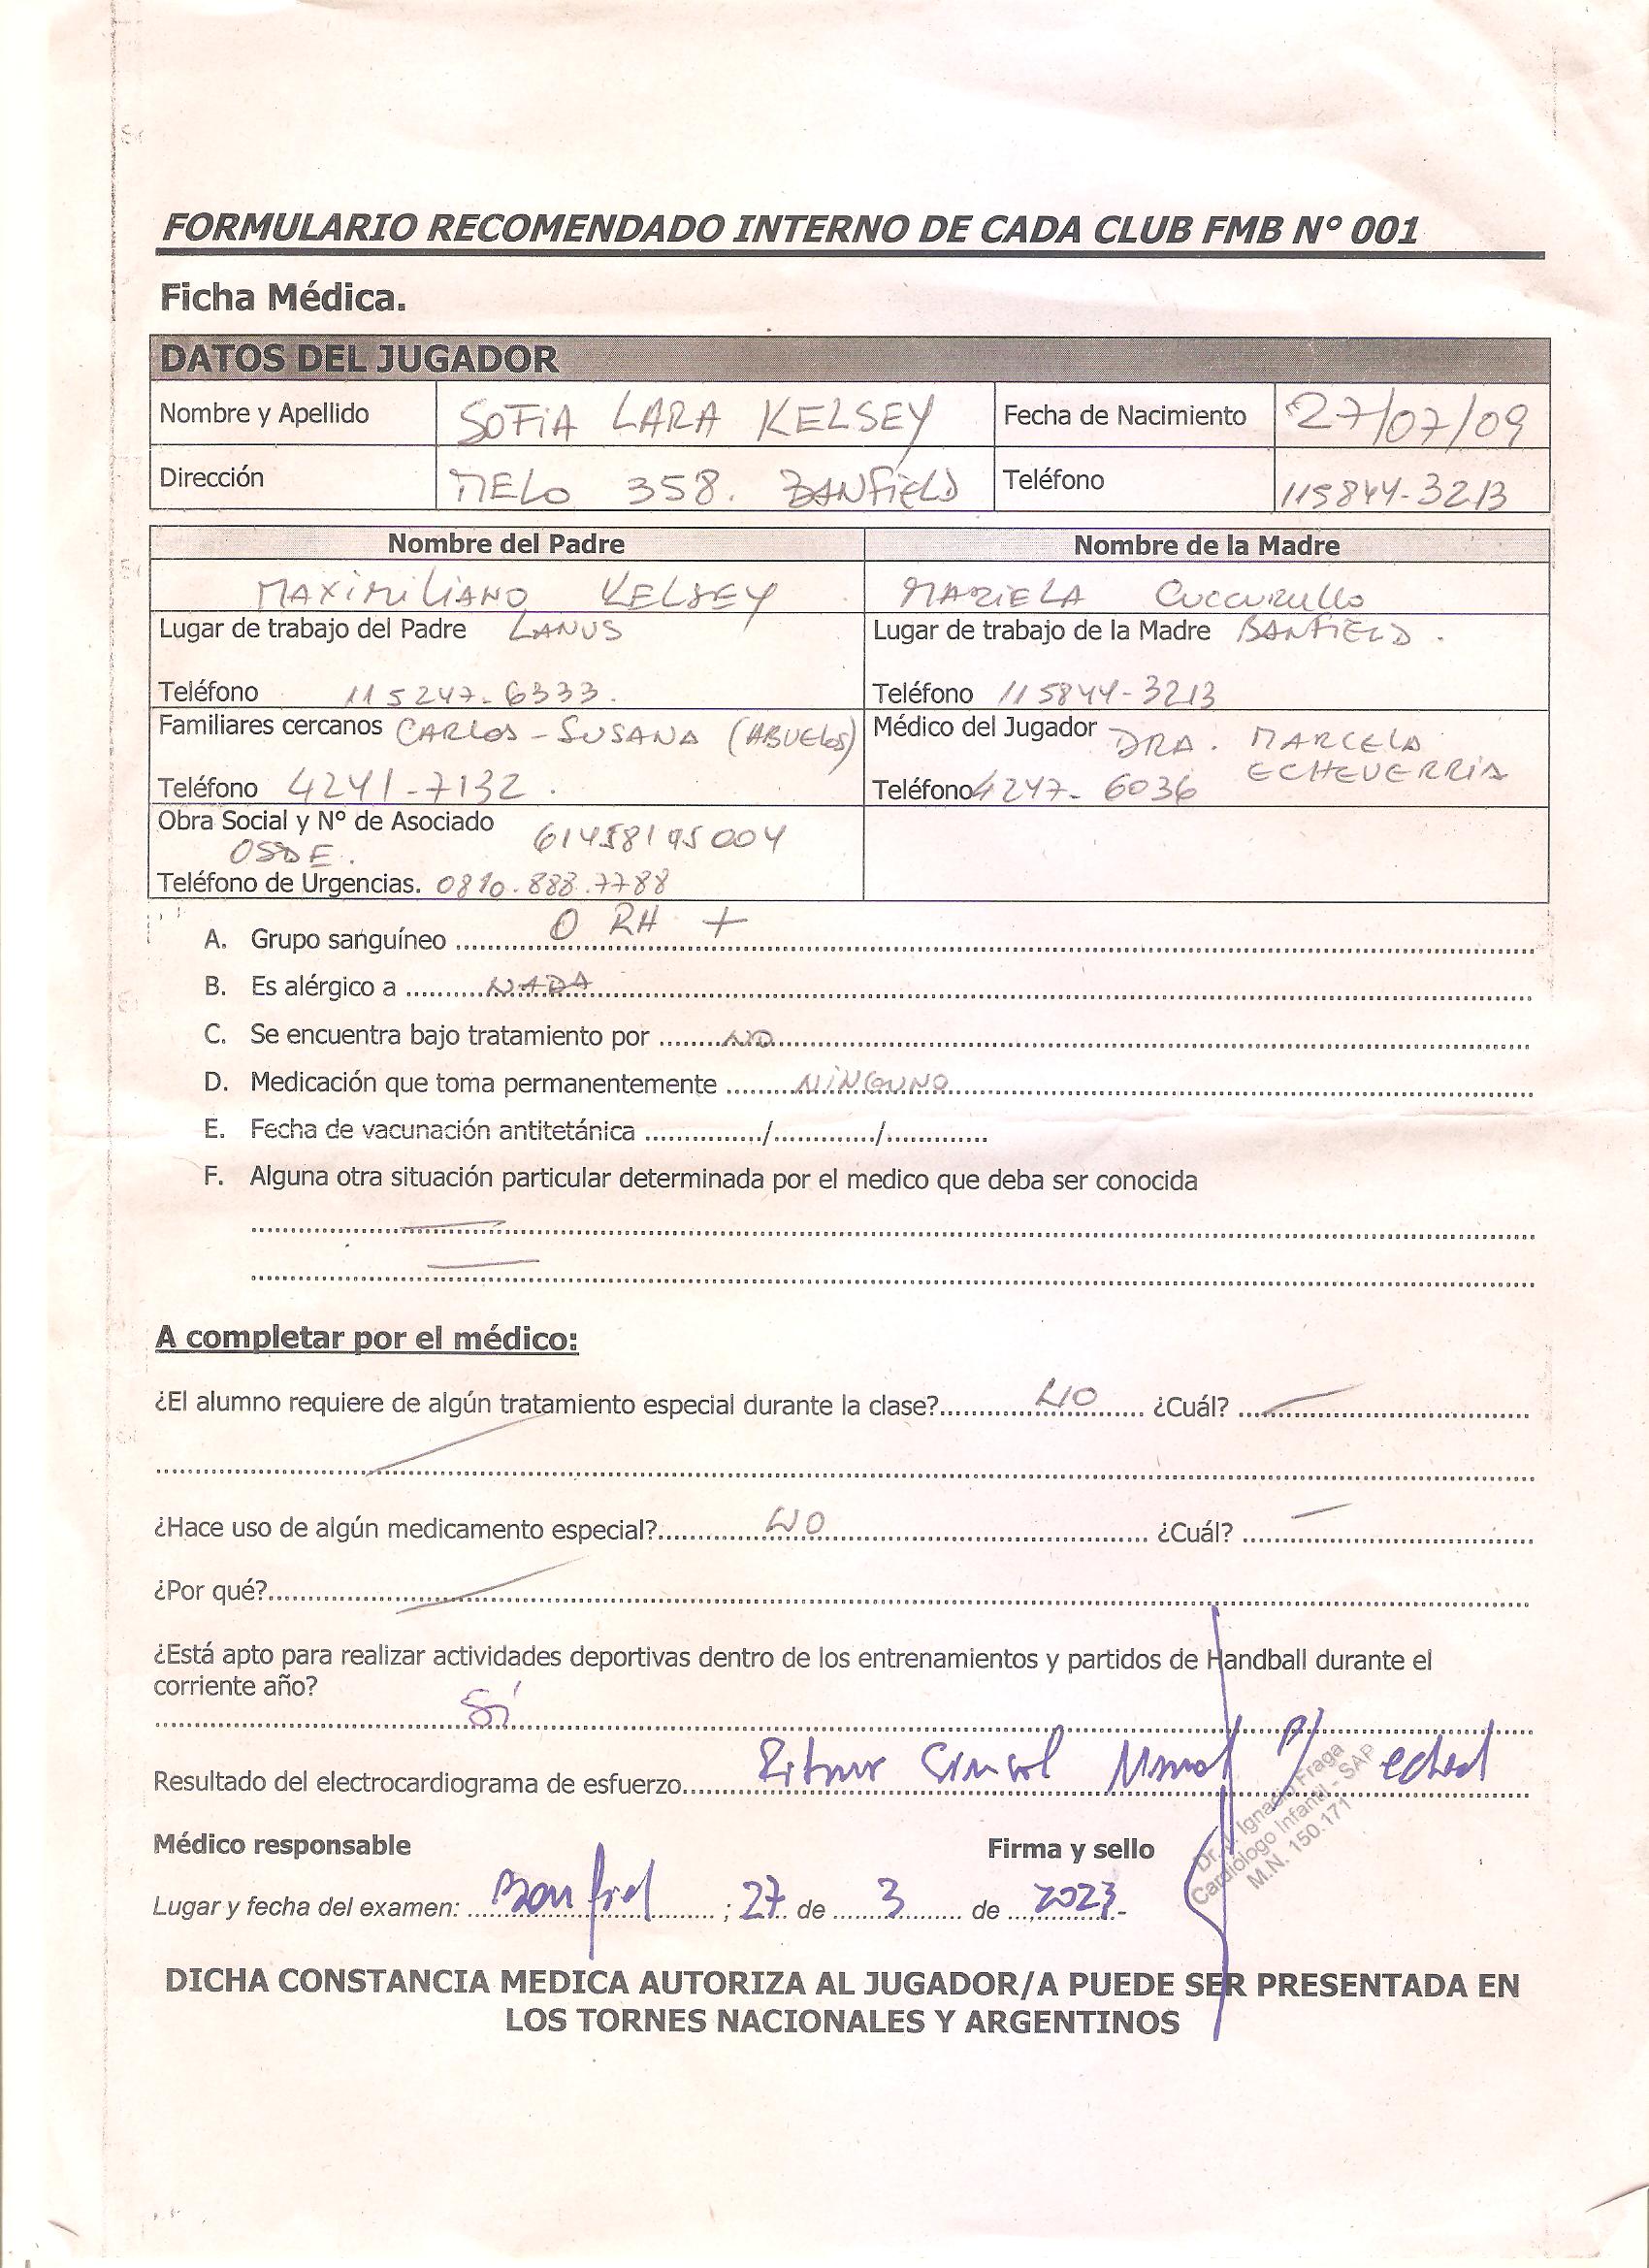 FORMULARIO RECOMENDADO INTERNO DE CADA CLUB FMB Nº 001
Ficha Médica.
DATOS DEL JUGADOR
Nombre y Apellido SOFIA LARA KELSEY Fecha de Nacimiento 27/07/09
Dirección MELO 358. BANFIELD Teléfono 115844-3213
Nombre del Padre Nombre de la Madre
MAXIMILIANO KELSEY MARIELA CUCCURULLO
Lugar de trabajo del Padre LANUS Lugar de trabajo de la Madre BANFIELD.
Teléfono 115247-6333. Teléfono 115844-3213
Familiares cercanos CARLOS - SUSANA (ABUELOS) Médico del Jugador DRA. MARCELA
ECHEVERRIA
Teléfono 4241-7132. Teléfono 4247-6036
Obra Social y Nº de Asociado 61458195004
OSDE.
Teléfono de Urgencias. 0810.888.7788
A. Grupo sanguíneo O RH +
B. Es alérgico a NADA
C. Se encuentra bajo tratamiento por NO
D. Medicación que toma permanentemente NINGUNO
E. Fecha de vacunación antitetánica ............./............./.............
F. Alguna otra situación particular determinada por el medico que deba ser conocida
A completar por el médico:
¿El alumno requiere de algún tratamiento especial durante la clase? NO ¿Cuál? —
¿Hace uso de algún medicamento especial? NO ¿Cuál? —
¿Por qué?
¿Está apto para realizar actividades deportivas dentro de los entrenamientos y partidos de Handball durante el
corriente año?
Sí
Resultado del electrocardiograma de esfuerzo. Ritmo Sinusal Normal p/ edad
Dr. J. Ignacio Fraga
Cardiólogo Infantil - SAP
M.N. 150.171
Médico responsable Firma y sello
Lugar y fecha del examen: Banfiel ; 27 de 3 de 2023.-
DICHA CONSTANCIA MEDICA AUTORIZA AL JUGADOR/A PUEDE SER PRESENTADA EN
LOS TORNES NACIONALES Y ARGENTINOS